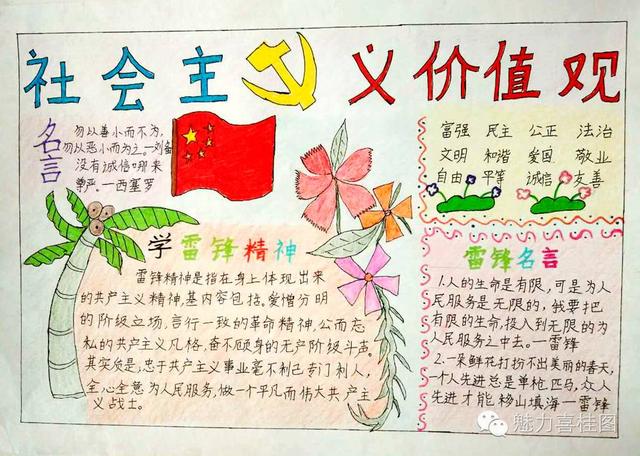 社会主义价值观
名言
勿以善小而不为,
勿以恶小而为之一刘备
没有诚信哪来
尊严一西塞罗
富强 民主 公正 法治
文明 和谐 爱国 敬业
自由 平等 诚信 友善
学雷锋精神
雷锋精神是指在身上体现出来
的共产主义精神,基内容包括,爱憎分明
的阶级立场,言行一致的革命精神,公而忘
私的共产主义风格,奋不顾身的无产阶级斗声。
其实质是,忠于共产主义事业毫不利己专门利人,
全心全意为人民服务,做一个平凡而伟大共产主
义战士。
雷锋名言
1.人的生命是有限,可是为人
民服务是无限的,我要把
有限的生命,投入到无限的为
人民服务之中去。一雷锋
2.一朵鲜花打扮不出美丽的春天,
一个人先进总是单枪匹马,众人
先进才能移山填海一雷锋
魅力喜桂图